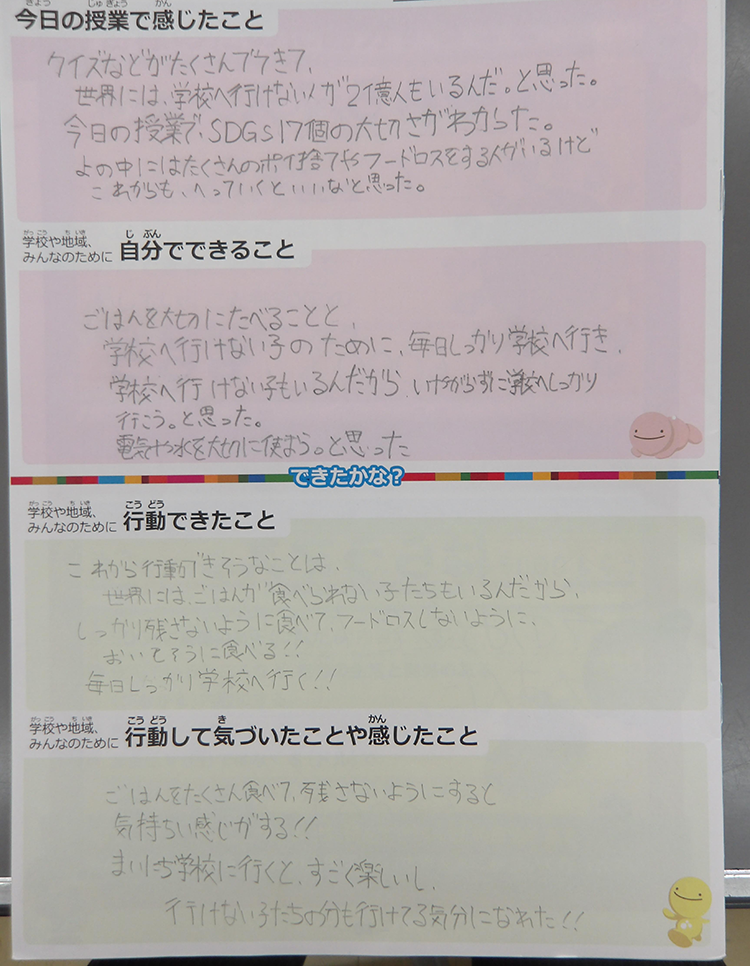 今日の授業で感じたこと
クイズなどがたくさんでてきて、
世界には、学校へ行けない人が2億人もいるんだ。と思った。
今日の授業で、SDGs17個の大切さがわかった。
よの中にはたくさんのポイ捨てやフードロスをする人がいるけど
これからも、へっていくといいなと思った。
学校や地域、
みんなのために 自分でできること
ごはんを大切にたべることと、
学校へ行けない子のために、毎日しっかり学校へ行き、
学校へ行けない子もいるんだから、いやがらずに学校へしっかり
行こう。と思った。
電気や水を大切に使おう。と思った
できたかな?
学校や地域、
みんなのために 行動できたこと
これから行動できそうなことは、
世界には、ごはんが食べられない子たちもいるんだから、
しっかり残さないように食べて、フードロスしないように、
おいしそうに食べる!!
毎日しっかり学校へ行く!!
学校や地域、
みんなのために 行動して気づいたことや感じたこと
ごはんをたくさん食べて、残さないようにすると
気持ちい感じがする!!
まいにち学校に行くと、すごく楽しいし、
行けない子たちの分も行けてる気分になれた!!